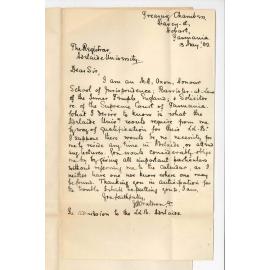 Chambers,
Hobart,
Tasmania
3 May '09
The Registrar,
Adelaide University.
Dear Sir,
I am an M.A. Oxon, Honour
School of Jurisprudence; Barrister-at-Law
of the Inner Temple, England; & Solicitor
&c. of the Supreme Court of Tasmania.
What I desire to know is what the
Adelaide Univ. would require from me
by way of qualification for their LL.B.
I suppose there would be no necessity for
my residing any time in Adelaide, or attend
any lectures. You would considerably oblige
me by giving all important particulars
without referring me to the calendar, as I
neither have one nor know where one may
be found. Thanking you in anticipation for
the trouble I shall be putting you, I am,
Yours faithfully,
Re admission to the LL.B. Adelaide.